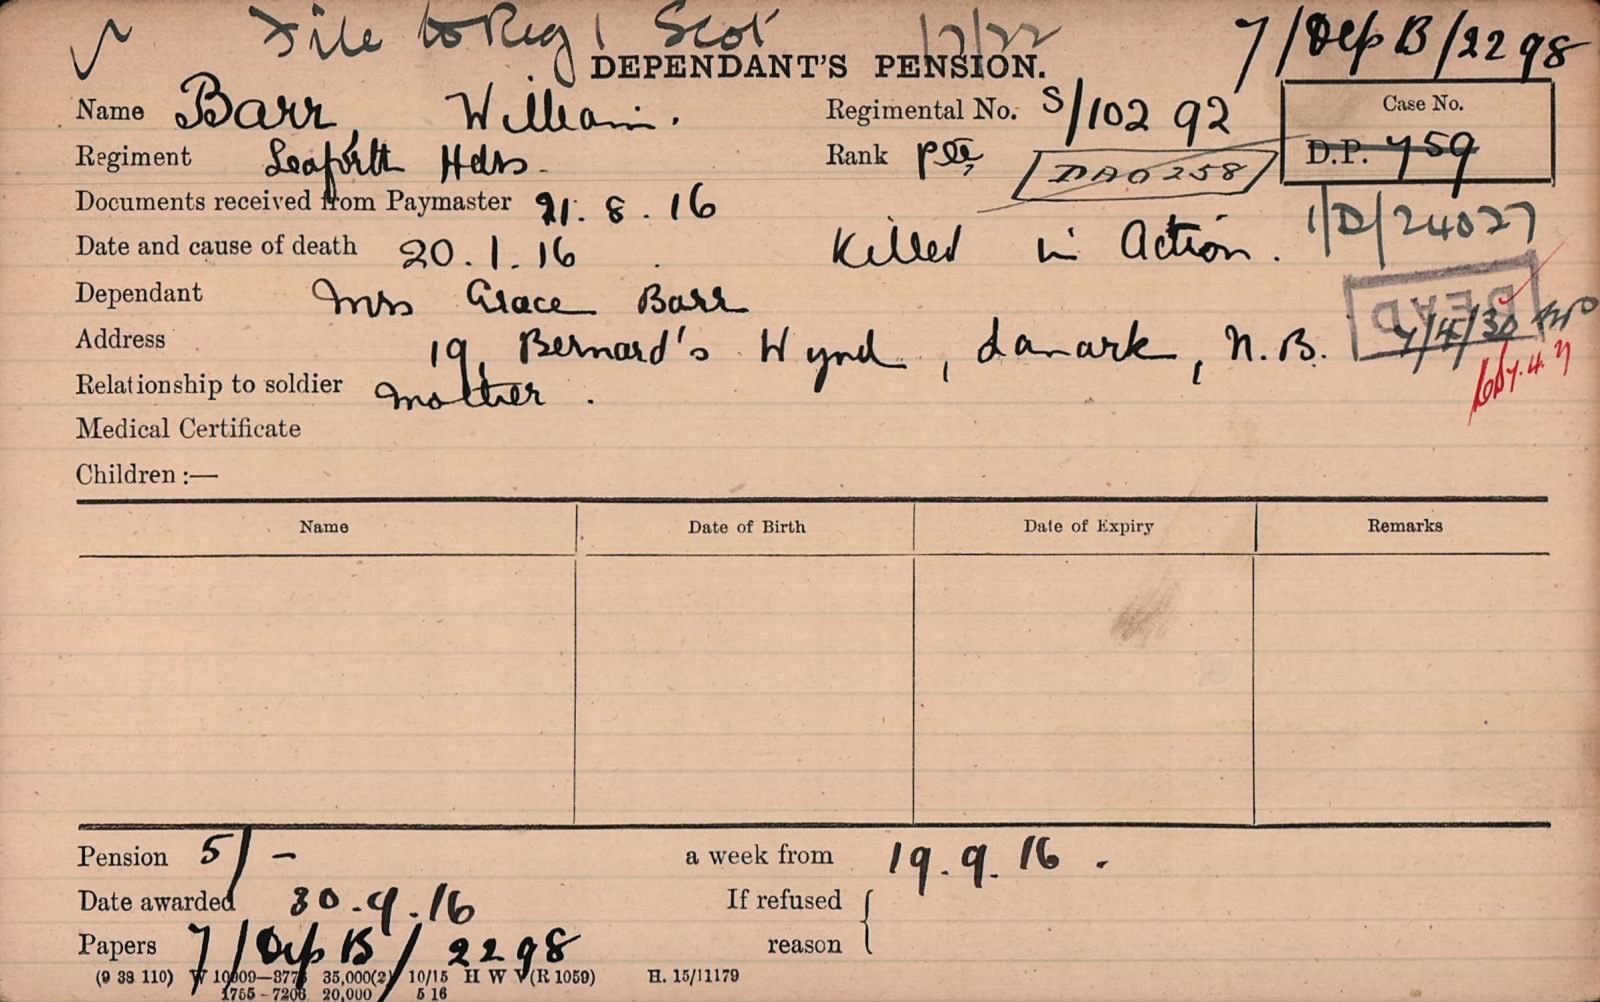 File to Reg / Scot 1/7/22
7/Dep B/2298
DEPENDANT'S PENSION.
Name Barr, William. Regimental No. S/10292
Case No.
D.P. 759
Regiment Seaforth Hdrs. Rank Pte,
DA0258
Documents received from Paymaster 21.8.16
1/D/24027
Date and cause of death 20.1.16 Killed in Action.
Dependant Mrs Grace Barr
DEAD
7/4/30
Address 19, Bernard's Wynd, Lanark, N.B.
Relationship to soldier Mother.
Medical Certificate
Children :—
Name Date of Birth Date of Expiry Remarks
Pension 5/- a week from 19.9.16.
Date awarded 30.9.16 If refused
Papers 7/Dep B/2298 reason
(9 38 110) W 10909—8773 35,000(2) 10/15 H W V (R 1059) H. 15/11179
1755 - 7206 20,000 5 16